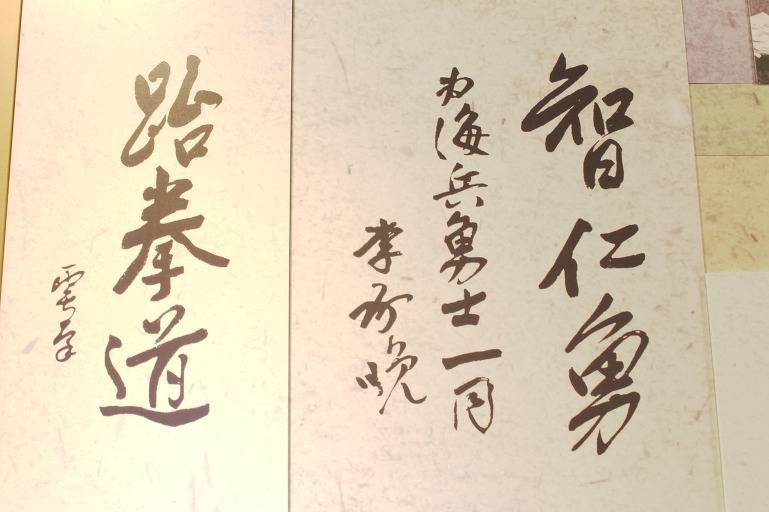 智仁勇
為海兵勇士一同
李承晩
跆拳道
雩南